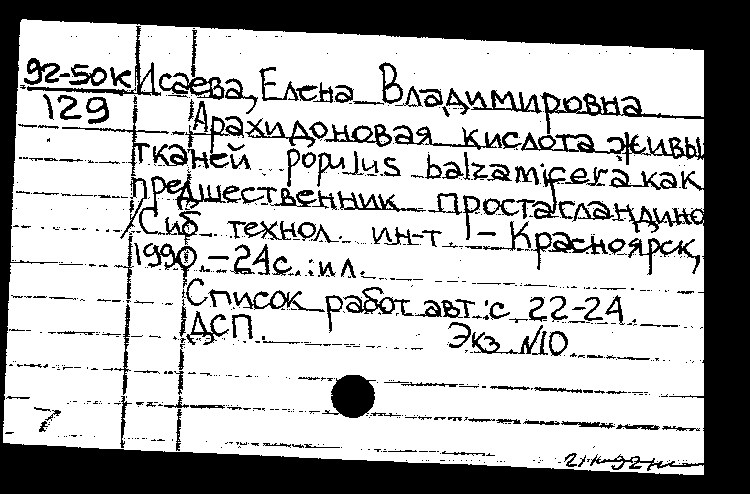 92-50К Исаева, Елена Владимировна
129
Арахидоновая кислота живы
тканей populus balzamifera как
предшественник простагландино
/Сиб технол. ин-т. – Красноярск,
1990. – 24с.: ил.
Список работ авт.: с. 22-24.
ДСП. Экз. №10